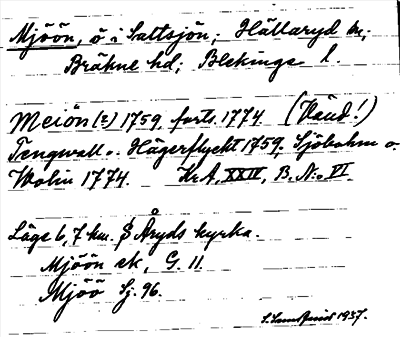 Mjöön, ö i Saltsjön; Hällaryd sn;
Bräkne hd; Blekinge l.
Meiön (z) 1759, forts. 1774 (Vänd!)
Tengwall o. Hägerflycht 1759, Sjöbohm o.
Wolin 1774. KrA, XXIV, B. N:o VI
Läge 6,7 km. S Åryds kyrka.
Mjöön ek, G. 11.
Mjöö Sj. 96.
1937.